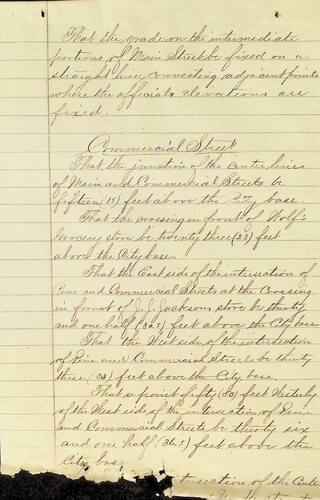 That the grade on the intermediate
portions of Main Street be fixed on a
straight line connecting adjacent points
where the official elevations are
fixed.
Commercial Street
That the junction of the center lines
of Main and Commercial Streets be
fifteen (15) feet above the City base.
That the crossing in front of Wolf's
Grocery store be twenty three (23) feet
above the City base.
That the East side of the intersection of
Pine and Commercial Streets at the Crossing
in front of J. J. Jacksons store be thirty
and one half (30.5) feet above the City base
That the West side of the intersection
of Pine and Commercial Streets be thirty
three (33) feet above the City base.
That a point fifty (50) feet Westerly
of the West side of the intersection of Pine
and Commercial Streets be thirty six
and one half (36.5) feet above the
City base.
tersection of the Center